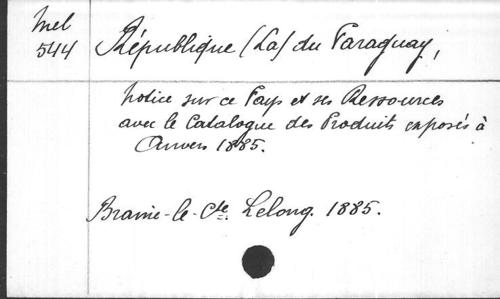 Mel
544
République (La) du Paraguay,
Notice sur ce Pays et ses Ressources
avec le Catalogue des Produits exposés à
Anvers 1885.
Braine-le-Cte. Lelong. 1885.